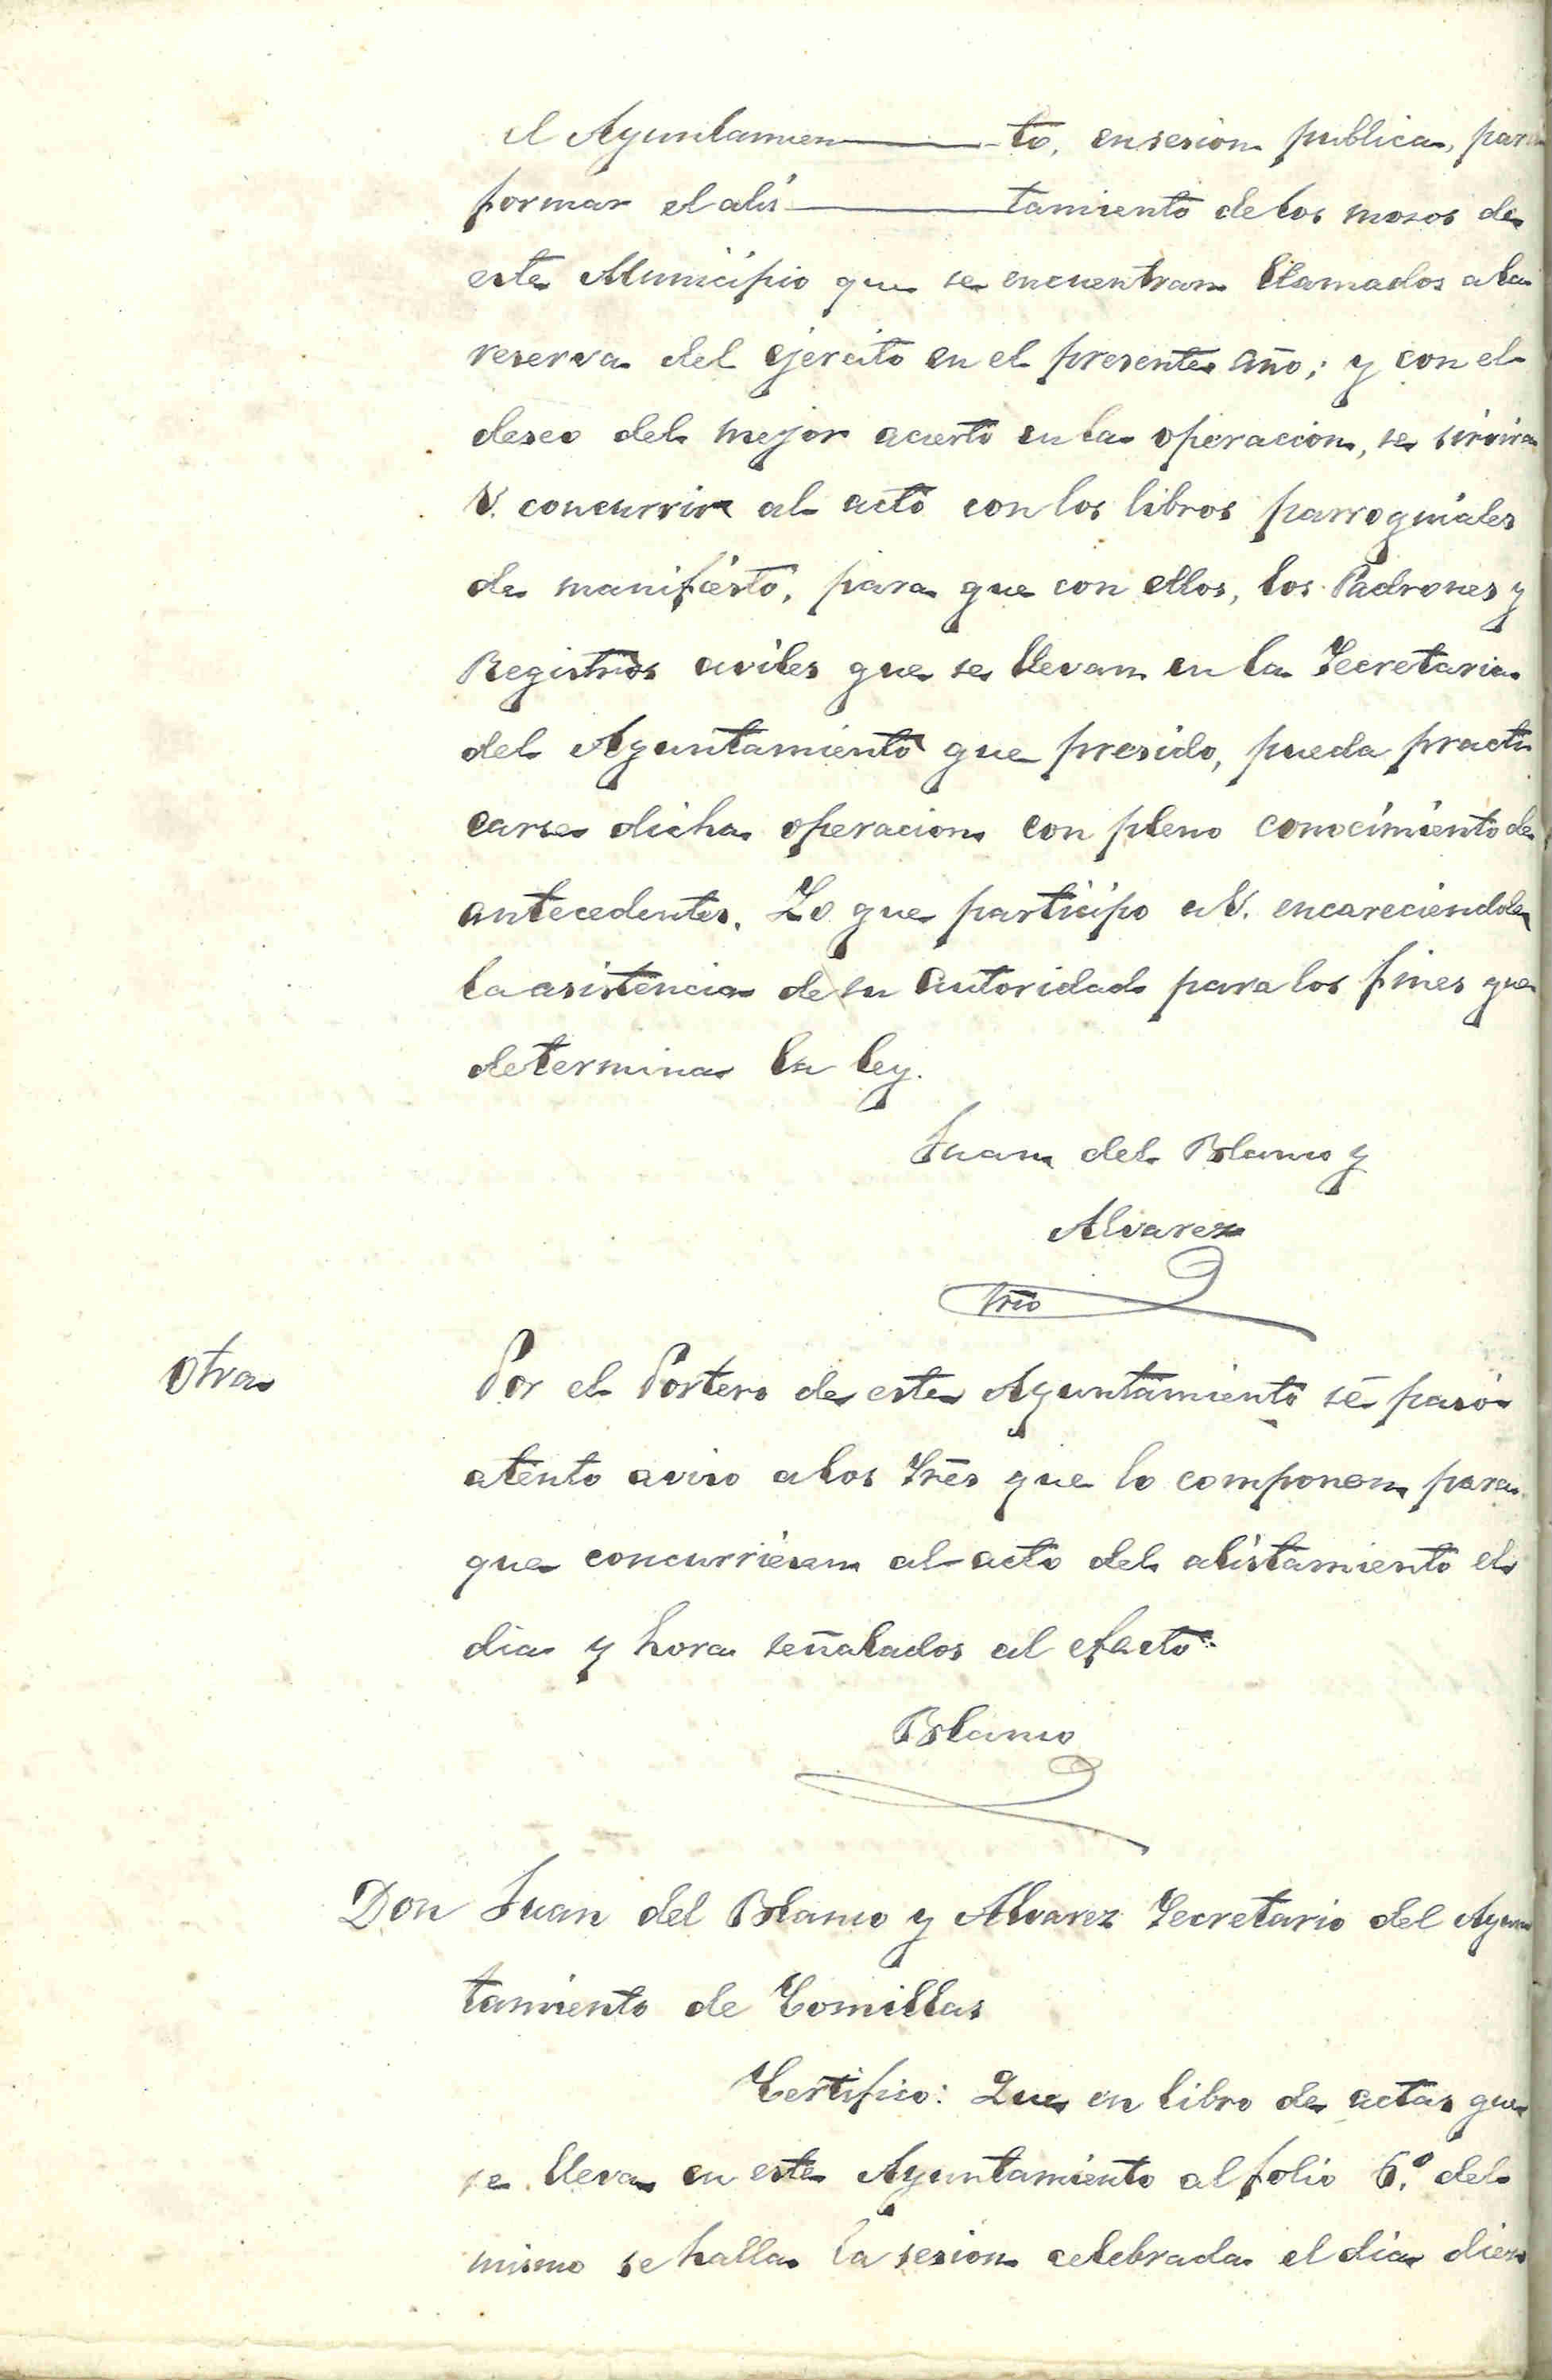 el Ayuntamien———to, en sesion publica, para
formar el alis———tamiento de los mosos de
este Municipio que se encuentran llamados a la
reserva del ejercito en el presente año; y con el
deseo del mejor acierto en la operacion, se sirvira
V. concurrir al acto con los libros parroquiales
de manifiesto, para que con ellos, los Padrones y
Registros civiles que se llevan en la Secretaria
del Ayuntamiento que presido, pueda practi
carse dicha operacion con pleno conocimiento de
antecedentes. Lo que participo a V. encareciendole
la asistencia de su autoridad para los fines que
determina la ley.
Juan del Blanco y
Alvarez
Srio
Otra
Por el Portero de este Ayuntamiento se pasó
atento aviso a los Sres que lo componen para
que concurriesen al acto del alistamiento el
dia y hora señalados al efecto
Blanco
Don Juan del Blanco y Alvarez Secretario del Ayun
tamiento de Comillas
Certifico: Que en libro de actas que
se lleva en este Ayuntamiento al folio 6.º del
mismo se halla la sesion celebrada el dia diez